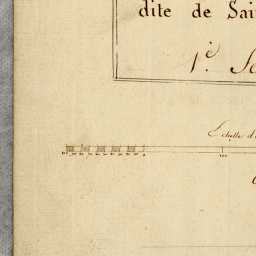 dite de Sai
1.e Se
Echelle d